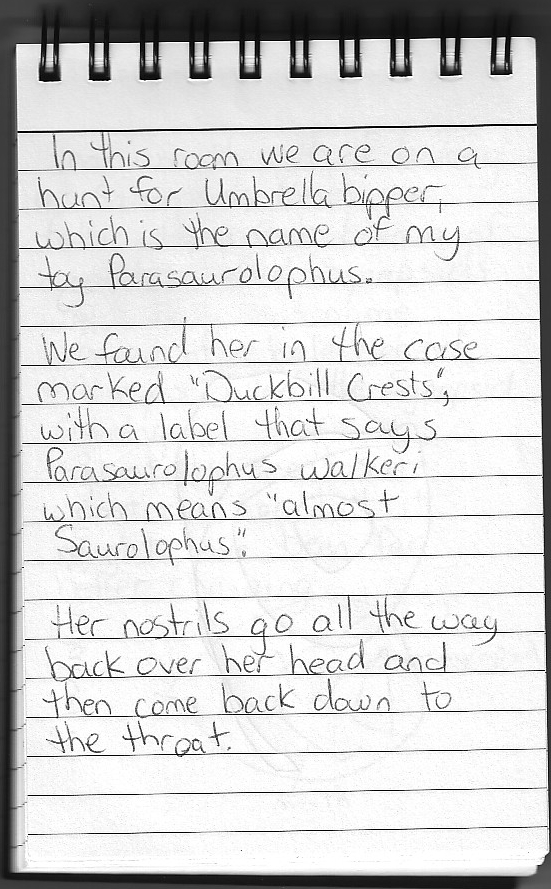 In this room we are on a
hunt for Umbrella bipper,
which is the name of my
toy Parasaurolophus.
We found her in the case
marked "Duckbill Crests",
with a label that says
Parasaurolophus walkeri
which means "almost
Saurolophus".
Her nostrils go all the way
back over her head and
then come back down to
the throat.